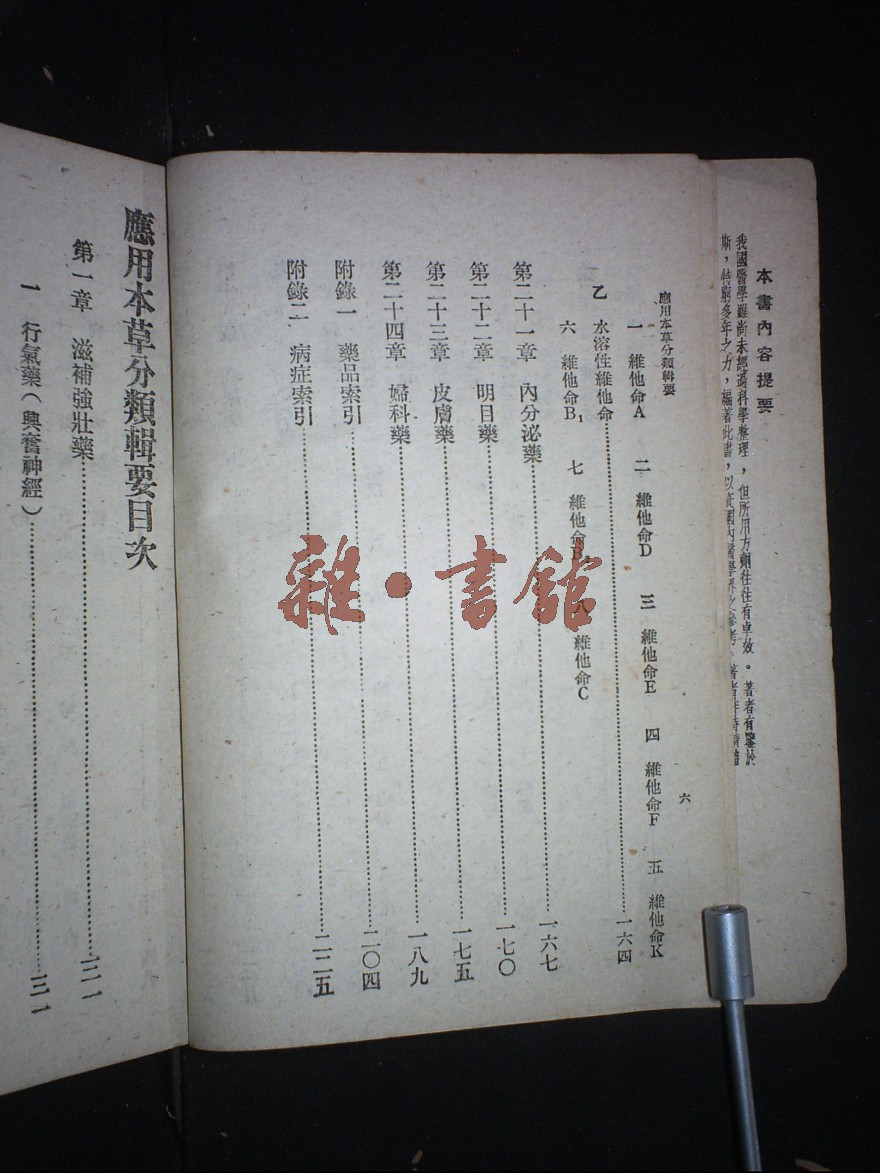 本書內容提要
我國醫學雖尚未經過科學整理，但所用方劑往往有卓效。著者有鑒於
斯，特窮多年之力，編著此書，以資國內醫學界之參考。
應用本草分類輯要
六
一 維他命A 二 維他命D 三 維他命E 四 維他命F 五 維他命K
乙 水溶性維他命 一六四
六 維他命B₁ 七 維他命B 八 維他命C
第二十一章 內分泌藥 一六七
第二十二章 明目藥 一七〇
第二十三章 皮膚藥 一七五
第二十四章 婦科藥 一八九
附錄一 藥品索引 二〇四
附錄二 病症索引 二二五
應用本草分類輯要目次
第一章 滋補強壯藥
一 行氣藥（興奮神經）
雜·書館